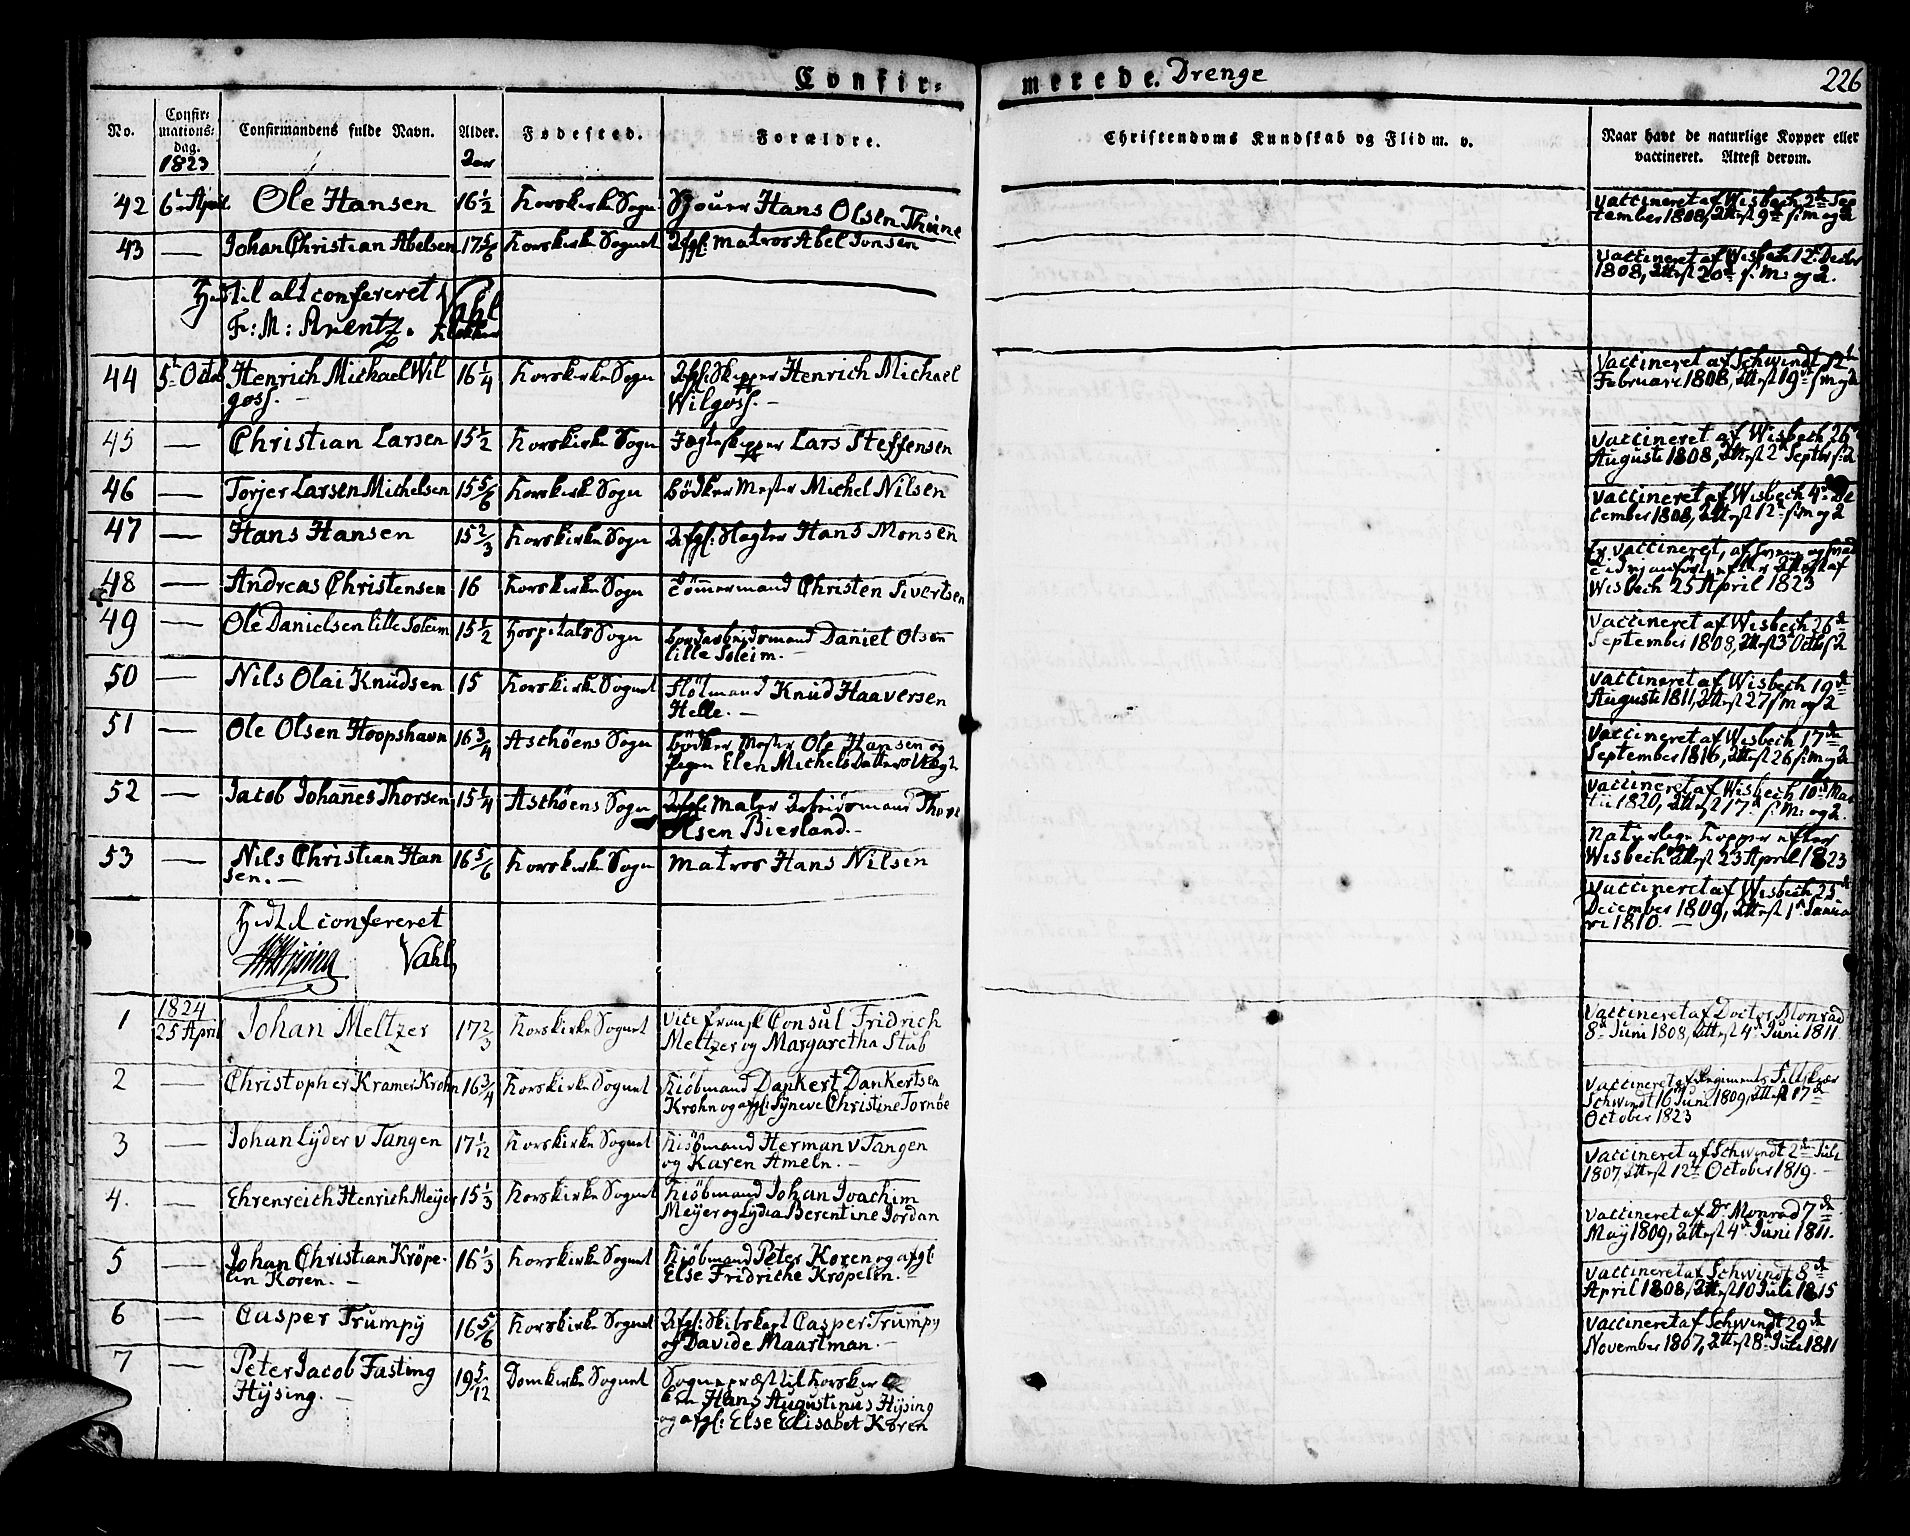 Confir=
merede. Drenge
226
No.
Confir-
mations-
dag.
1823
Confirmandens fulde Navn.
Alder.
Aar
Fødested.
Forældre.
Christendoms Kundskab og Flid m. v.
Naar havt de naturlige Kopper eller
vaccineret. Attest derom.
42 6te April Ole Hansen 16 1/2 Korskirke Sogn Sjouer Hans Olsen Thune
Vaccineret af Wisbech 2de Sep
tember 1808, Attest 9de s: M og A
43 — Johan Christian Abelsen 17 5/6 Korskirke Sognet Afgl: Matros Abel Jonsen
Vaccineret af Wisbech 12te Decbr
1808, Attest 20de s: M: og A.
Hidtil alt confereret
Fr: M: Arentz. Vahl
Klokker
44 5te Octob Henrich Michael Wil
goss. — 16 1/4 Korskirke Sogn Afgl: Skipper Henrich Michael
Wilgoss. —
Vaccineret af Schwindt 12te
Februari 1808, Attest 19de s M og A
45 — Christian Larsen 15 1/2 Korskirke Sogn Jægteskipper Lars Steffensen
Vaccineret af Wisbech 26de
Augusti 1808, Attest 2de Septbr s: A
46 — Torjer Larsen Michelsen 15 5/6 Korskirke Sogn Bödker Mester Michel Nilsen
Vaccineret af Wisbech 4de De
cember 1808, Attest 12te s: M og A
47 — Hans Hansen 15 2/3 Korskirke Sogn Afgl: Slagter Hans Monsen
Er vaccineret, af
Attest af
Wisbech 25 April 1823
48 — Andreas Christensen 16 Korskirke Sogn Tömmermand Christen Sivertsen
49 — Ole Danielsen lille Soleim 15 1/2 Hospitals Sogn Bordarbeidsmand Daniel Olsen
lille Soleim. —
Vaccineret af Wisbech 26de
September 1808, Attest 3de Octb s A
50 — Nils Olai Knudsen 15 Korskirke Sognet Flötmand Knud Haaversen
Helle. —
Vaccineret af Wisbech 19de
Augusti 1811, Attest 27 s M og A
51 — Ole Olsen Hoopshavn 16 3/4 Aschöens Sogn Bödker Mester Ole Hansen og
Pigen Elen Michels Datter
Vaccineret af Wisbech 17de
September 1816, Attest 26 s: M og A
52 — Jacob Johannes Thorsen 15 1/4 Aschöens Sogn Afgl: Maler Arbeidsmand Thore
Olsen Bierland. —
Vaccineret af Wisbech 10de Mar
tii 1820, Attest 17de s: M: og A.
Naturlige Kopper efter
Wisbech Attest 23 April 1823
53 — Nils Christian Han
sen. — 16 5/6 Korskirke Sogn Matros Hans Nilsen
Vaccineret af Wisbech 25de
December 1809, Attest 1te Janua
ri 1810. —
Hidtil confereret
Hysing Vahl
1 1824
25 April Johan Meltzer 17 2/3 Korskirke Sognet Vice Fransk Consul Fridrich
Meltzer og Margaretha Stub
Vaccineret af Doctor Monrad
8de Juni 1808, Attest 4de Juni 1811
2 — Christopher Kramer Krohn 16 3/4 Korskirke Sognet Kiöbmand Dankert Dankertsen
Krohn og afgl: Syneve Christine Tornöe
Vaccineret af Regiments Feltskiær
Schwindt 16 Juni 1809, Attest 17de
October 1823
3 — Johan Lyder v Tangen 17 1/12 Korskirke Sognet Kiöbmand Herman v Tangen
og Karen Ameln. —
Vaccineret af Schwindt 2de Juli
1807, Attest 12te October 1819. —
4. — Ehrenreich Henrich Meijer 15 1/3 Korskirke Sognet Kiöbmand Johan Joachim
Meijer og Lydia Berentine Jordan
Vaccineret af Dr Monrad 7de
Maij 1809, Attest 4de Juni 1811.
5 — Johan Christian Kröpe-
lin Koren. — 16 1/3 Korskirke Sognet Kjöbmand Peter Koren og afgl
Else Fridriche Kröpelin. —
Vaccineret af Schwindt 8de
April 1808, Attest 10 Juli 1815
6 — Casper Trumpy 16 5/6 Korskirke Sognet Afgl: Skibskapt Casper Trumpy
og Davide Maartman. —
Vaccineret af Schwindt 29de
November 1807, Attest 8de Juli 1811
7 — Peter Jacob Fasting
Hysing. — 19 5/12 Domkirke Sognet Sognepræst til Korskir
ken Hans Augustinus Hysing
og afgl: Else Elisabet Koren